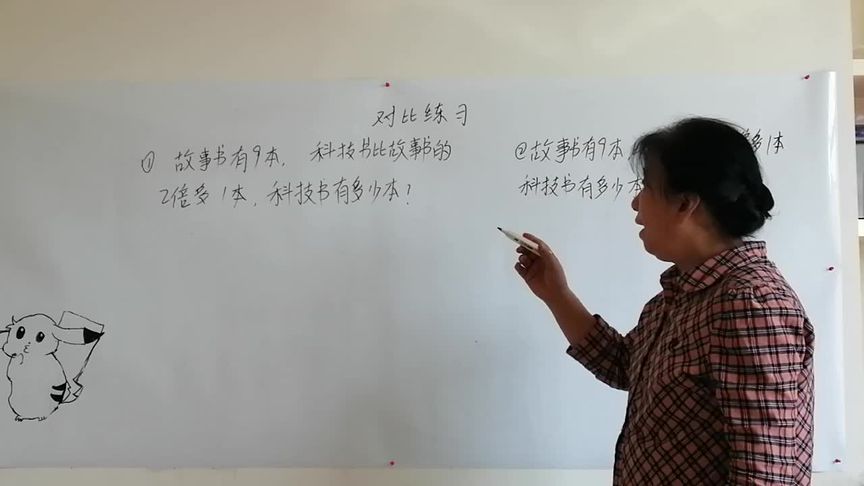 对比练习
① 故事书有9本, 科技书比故事书的
2倍多1本, 科技书有多少本?
②故事书有9本, 多1本
科技书有多少本